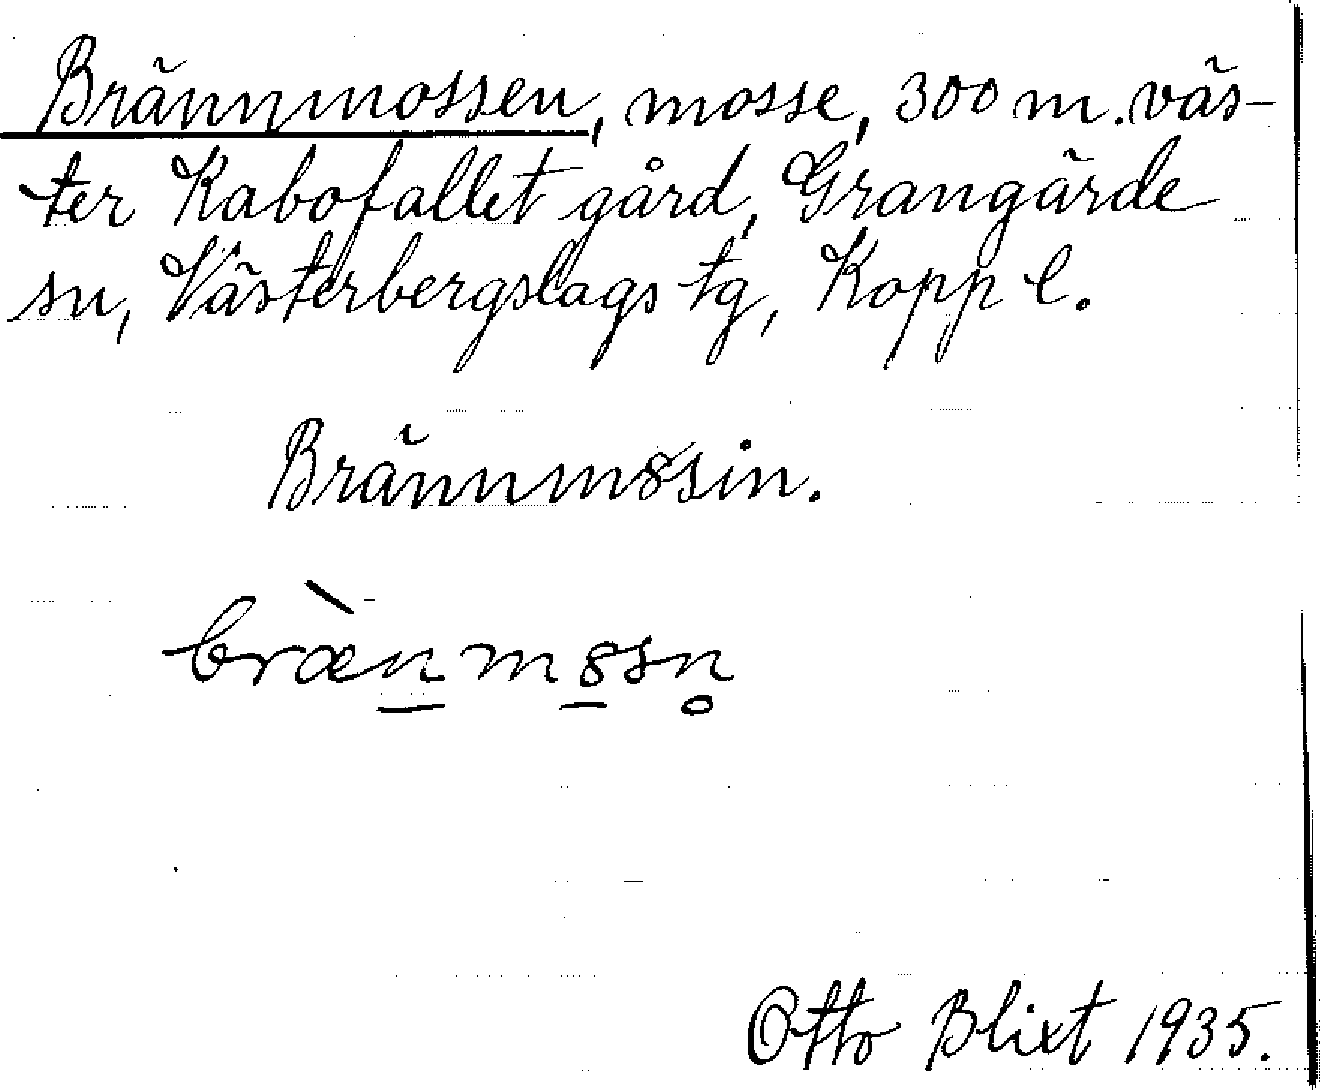 Brännmossen, mosse, 300 m. väs-
ter Kabofallet gård, Grangärde
sn, Västerbergslags tg, Kopp l.
Brännm8sin.
bræ̀n m8sn̥
Otto Blixt 1935.